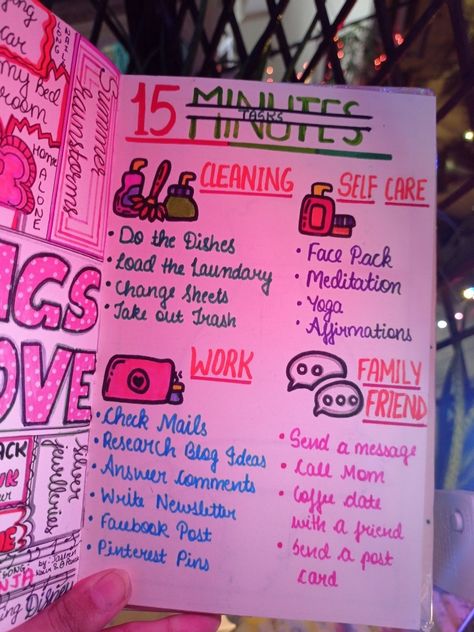 15 MINUTES
TASKS
CLEANING
• Do the Dishes
• Load the Laundary
• Change Sheets
• Take out Trash
SELF CARE
• Face Pack
• Meditation
• Yoga
• Affirmations
WORK
• Check Mails
• Research Blog Ideas
• Answer Comments
• Write Newsletter
• Facebook Post
• Pinterest Pins
FAMILY
FRIEND
• Send a message
• Call Mom
• Coffee date
with a friend
• Send a post
card
my Bed
room
Home
ALONE
Summer
Rainstorms
NGS
OVE
Silver
jewelleries